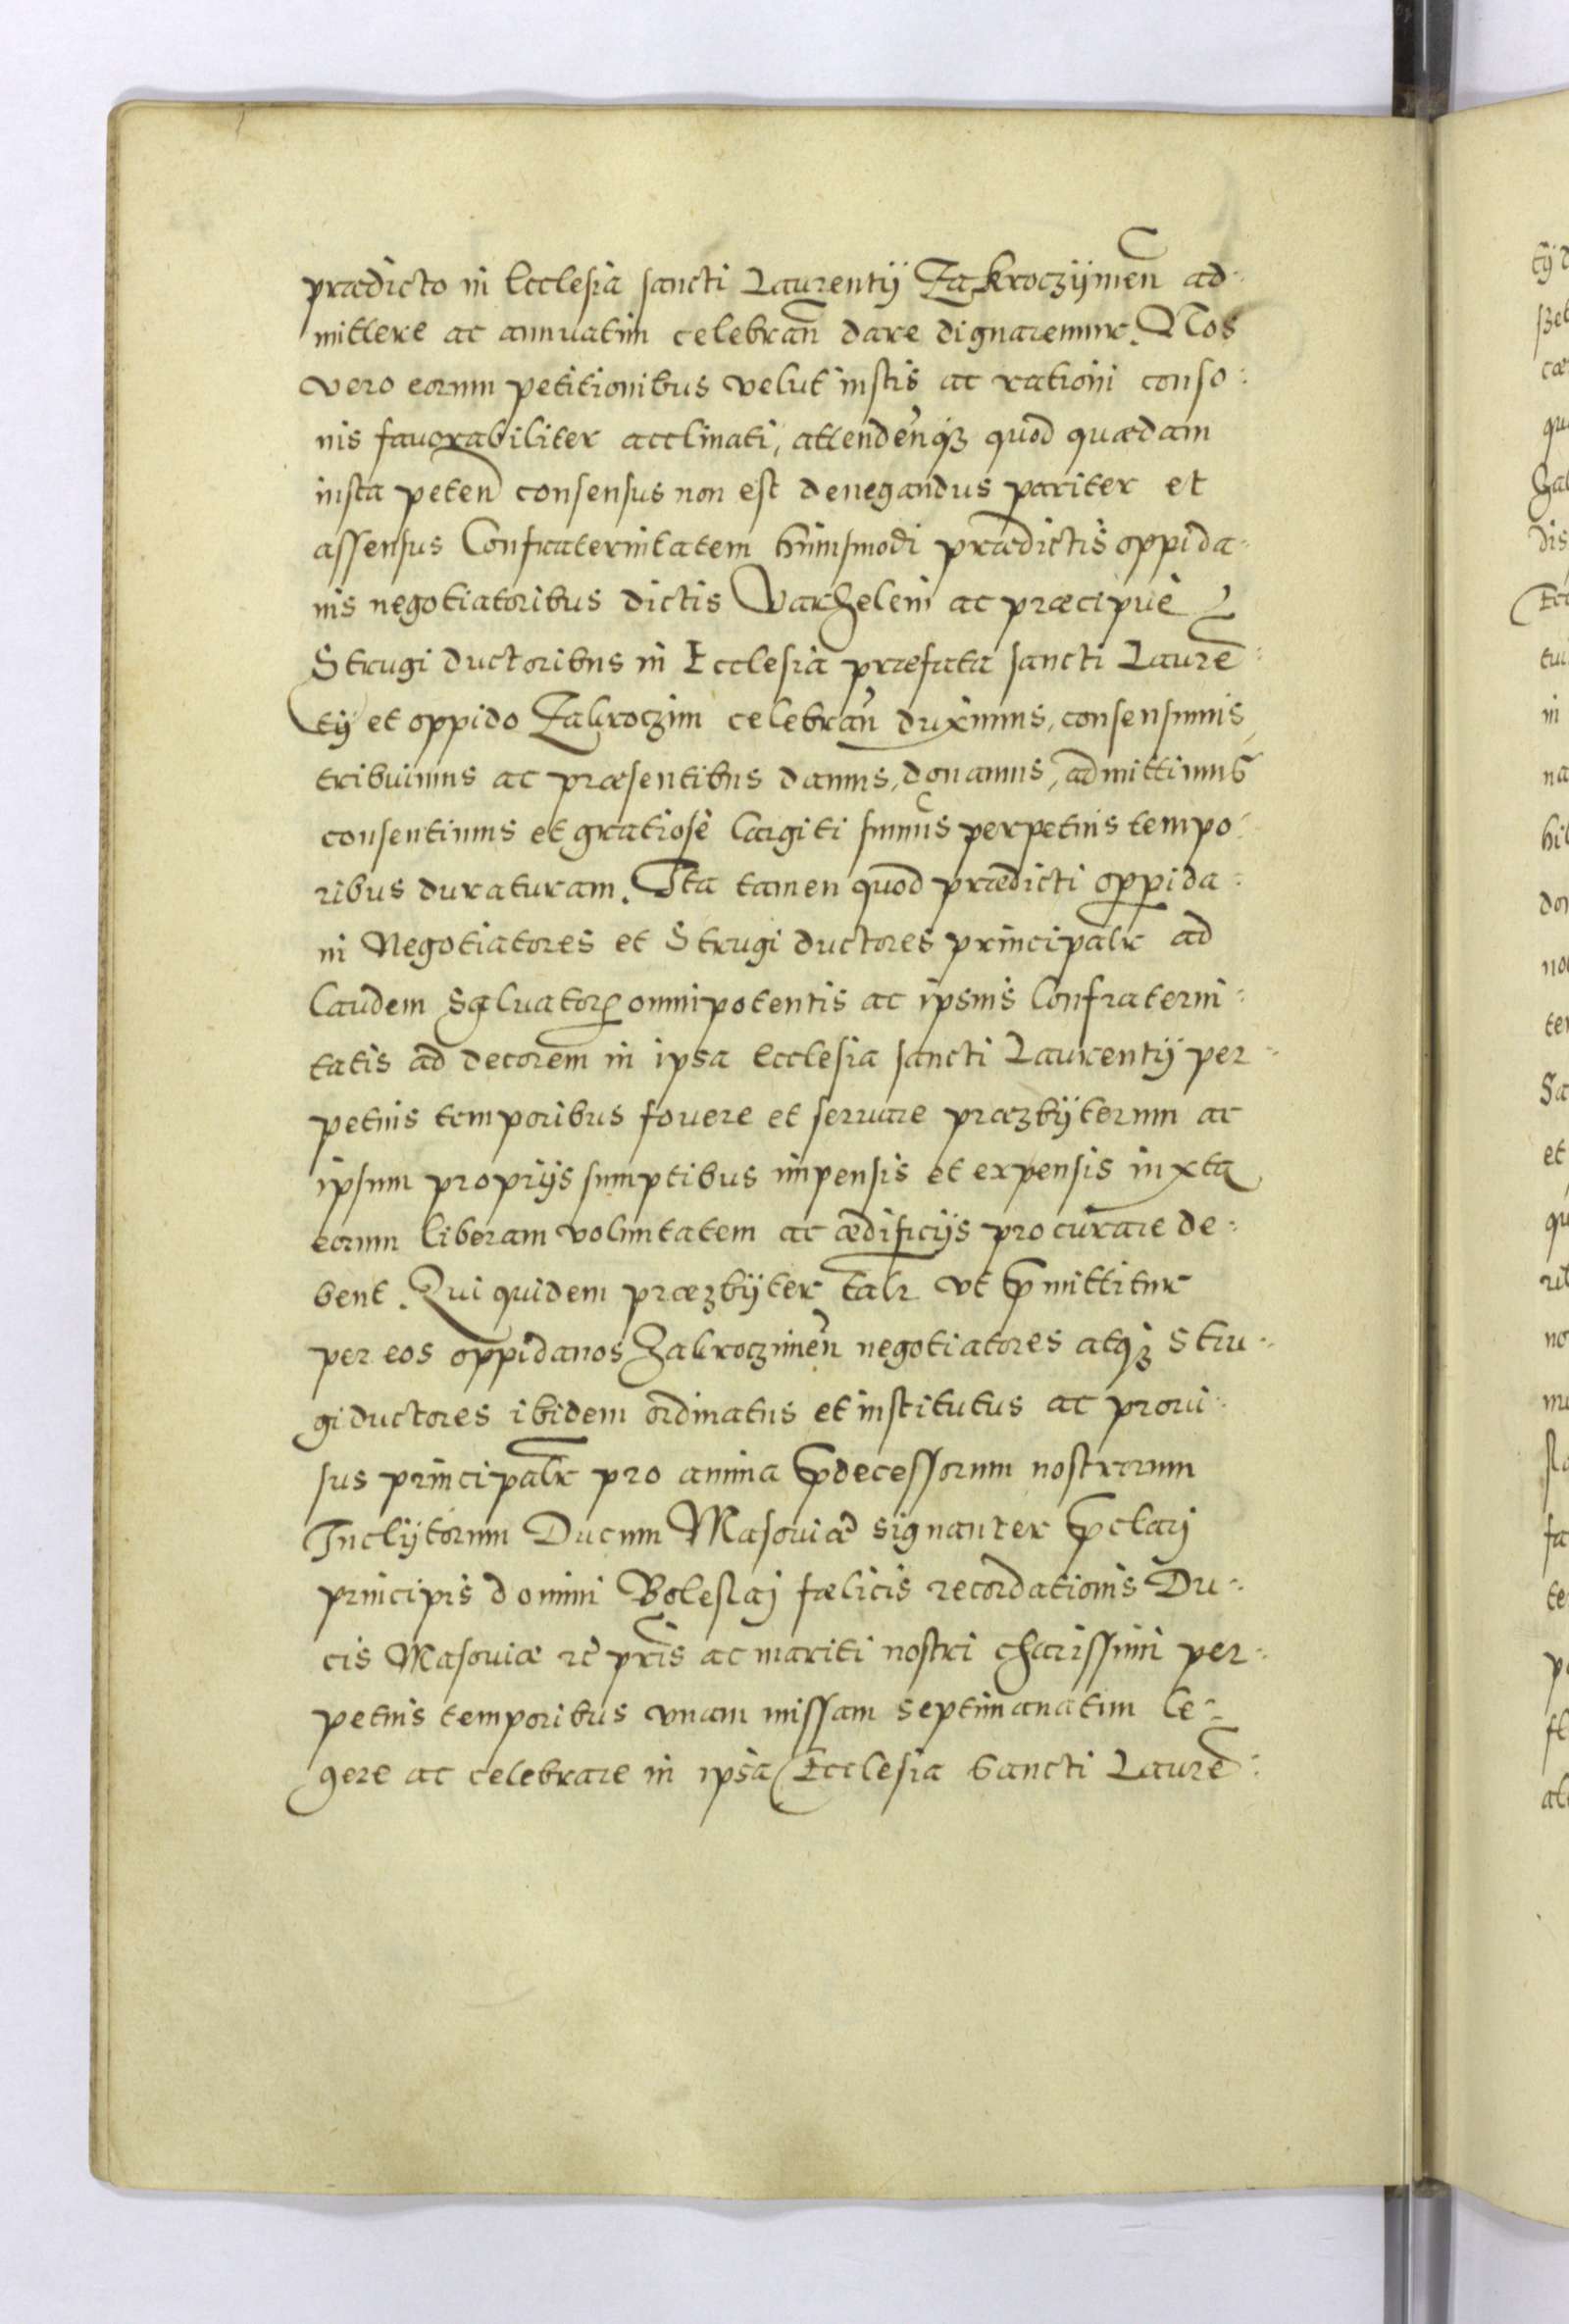 prædicto in Ecclesia sancti Laurentij Zakroczÿmen̄ ad-
mittere ac annuatim celebran̄ dare dignaremur. Nos
vero eorum petitionibus velut iustis ac rationi conso-
nis favorabiliter acclinati, attenden̄qꝫ quod quædam
iusta peten̄ consensus non est denegandus pariter et
assensus Confraternitatem huiusmodi prædictis oppida-
nis negotiatoribus dictis Varzelem ac præcipuè
Strugi ductoribus in Ecclesia præfata sancti Laurē-
tÿ et oppido Zakroczim celebran̄ duximus, consensimus,
tribuimus ac præsentibus damus, donamus, admittimus
consentimus et gratiosè largiti sumus perpetuis tempo-
ribus duraturam. Ita tamen quod prædicti oppida-
ni Negotiatores et Strugi ductores principalr ad
laudem Saluatoꝝ omnipotentis ac ipsius Confraterni-
tatis ad decorem in ipsa Ecclesia sancti Laurentij per-
petuis temporibus fouere et seruare præzbÿterum ac
ipsum proprijs sumptibus impensis et expensis iuxta
eorum liberam voluntatem ac ædificijs procurare de-
bent. Qui quidem præzbÿter talr vt p̄mittitur
per eos oppidanos Zakroczimen̄ negotiatores atqꝫ Stru-
gi ductores ibidem ordinatus et institutus ac proui-
sus principalr pro anima p̄decessorum nostrorum
Inclÿtorum Ducum Masouiæ signanter p̄clarj
principis domini Boleslaj fælicis recordationis Du-
cis Masouiæ rc̄ pr̄is ac mariti nostri charissimi per-
petuis temporibus vnam missam septimanatim le-
gere ac celebrare in ipsa Ecclesia Sancti Laurē-